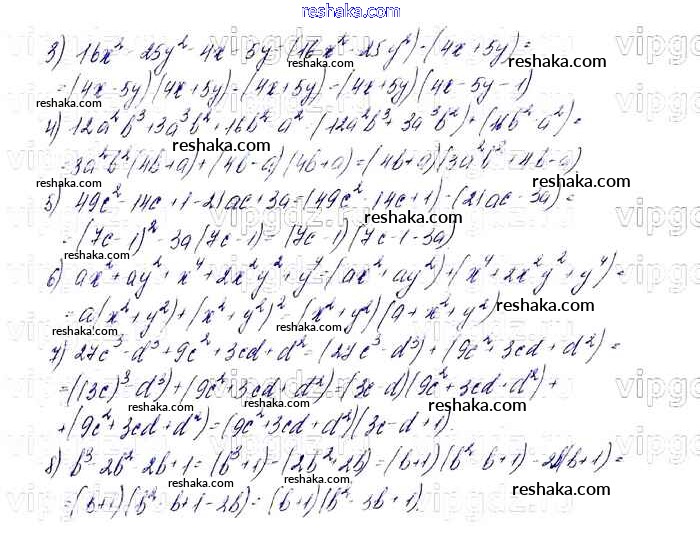 reshaka.com
3) 16x² - 25y² - 4x - 5y = (16x² - 25y²) - (4x + 5y) =
= (4x - 5y)(4x + 5y) - (4x + 5y) = (4x + 5y)(4x - 5y - 1)
4) 12a²b³ + 3a³b² + 16b² - a² = (12a²b³ + 3a³b²) + (16b² - a²) =
= 3a²b²(4b + a) + (4b - a)(4b + a) = (4b + a)(3a²b² + 4b - a)
5) 49c² - 14c + 1 - 21ac + 3a = (49c² - 14c + 1) - (21ac - 3a) =
= (7c - 1)² - 3a(7c - 1) = (7c - 1)(7c - 1 - 3a)
6) ax² + ay² + x⁴ + 2x²y² + y⁴ = (ax² + ay²) + (x⁴ + 2x²y² + y⁴) =
= a(x² + y²) + (x² + y²)² = (x² + y²)(a + x² + y²)
7) 27c³ - d³ + 9c² + 3cd + d² = (27c³ - d³) + (9c² + 3cd + d²) =
= ((3c)³ - d³) + (9c² + 3cd + d²) = (3c - d)(9c² + 3cd + d²) +
+ (9c² + 3cd + d²) = (9c² + 3cd + d²)(3c - d + 1).
8) b³ - 2b² - 2b + 1 = (b³ + 1) - (2b² + 2b) = (b + 1)(b² - b + 1) - 2b(b + 1) =
= (b + 1)(b² - b + 1 - 2b) = (b + 1)(b² - 3b + 1).
reshaka.com